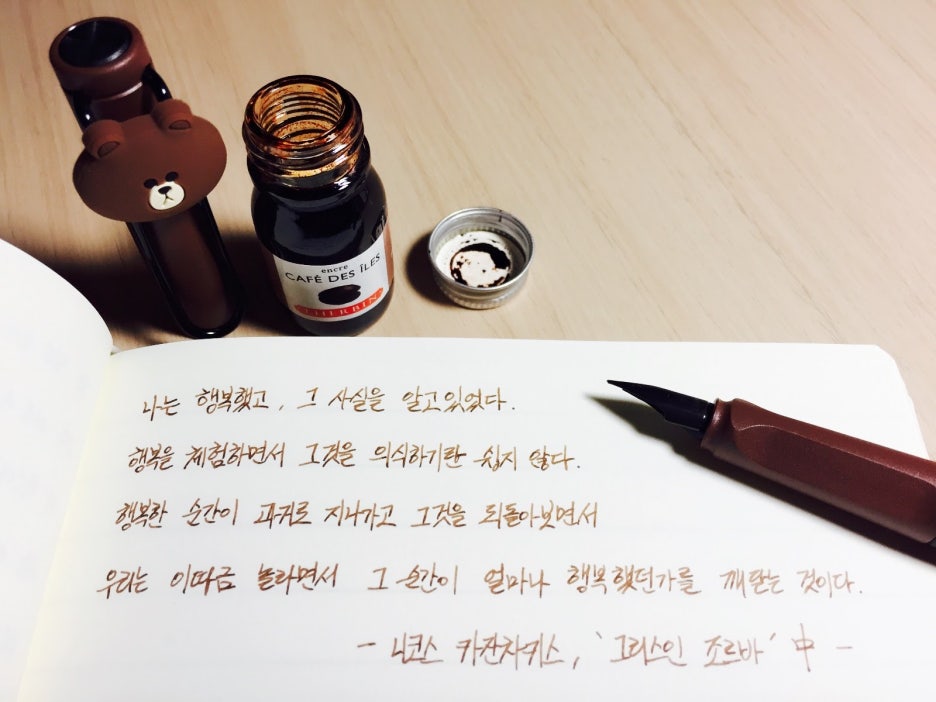 encre
CAFÉ DES ÎLES
J. HERBIN
나는 행복했고, 그 사실을 알고있었다.
행복을 체험하면서 그것을 의식하기란 쉽지 않다.
행복한 순간이 과거로 지나가고 그것을 되돌아보면서
우리는 이따금 놀라면서 그 순간이 얼마나 행복했던가를 깨닫는 것이다.
- 니코스 카잔차키스, '그리스인 조르바' 中 -